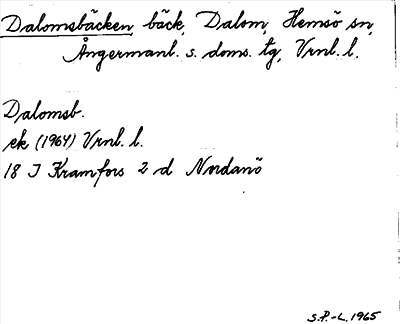 Dalomsbäcken, bäck, Dalom, Hemsö sn,
Ångermanl. s. doms. tg, Vrnl. l.
Dalomsb.
ek (1964) Vrnl. l.
18 J Kramfors 2 d Nordanö
S.P.-L. 1965